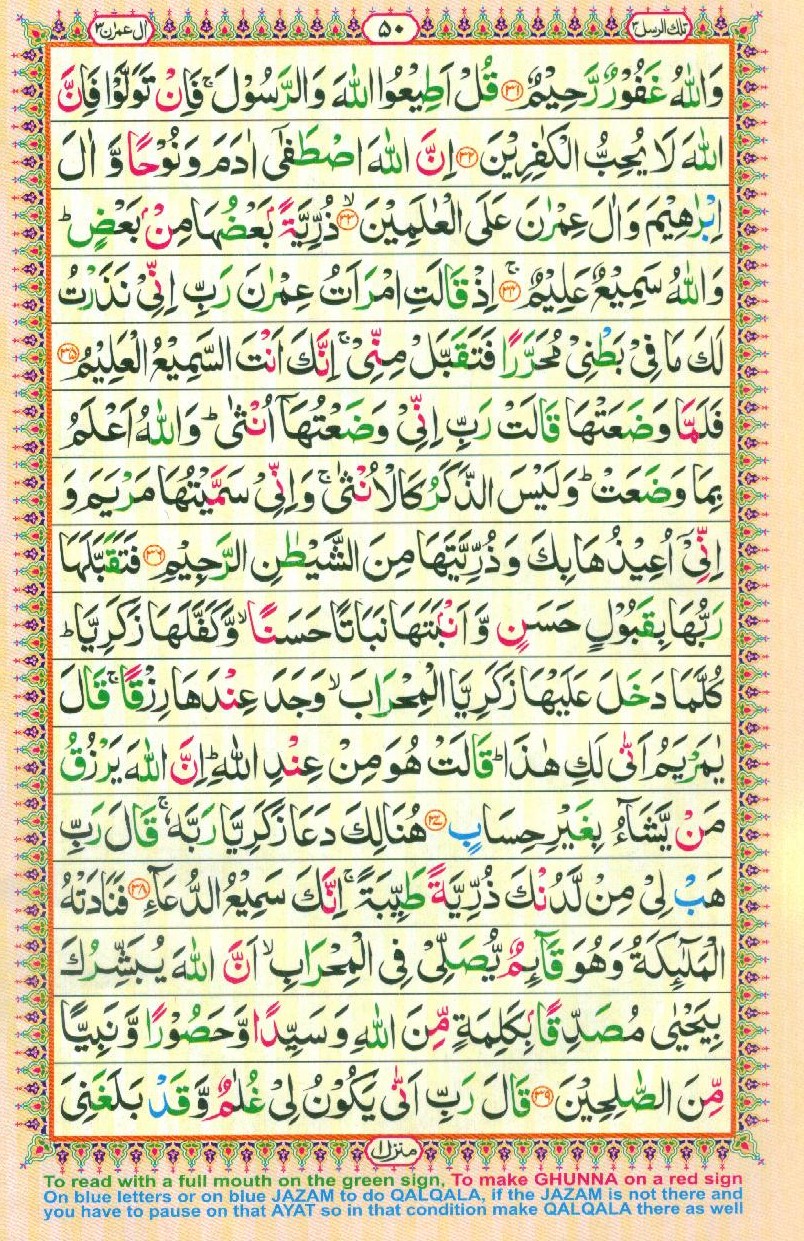 تلك الرسل ٣
٥٠
ال عمرٰن ٣
وَاللّٰهُ غَفُوْرٌ رَّحِيْمٌ ﴿۳۱﴾ قُلْ اَطِيْعُوا اللّٰهَ وَالرَّسُوْلَ ۚ فَاِنْ تَوَلَّوْا فَاِنَّ
اللّٰهَ لَا يُحِبُّ الْكٰفِرِيْنَ ﴿۳۲﴾ اِنَّ اللّٰهَ اصْطَفٰۤى اٰدَمَ وَنُوْحًا وَّ اٰلَ
اِبْرٰهِيْمَ وَاٰلَ عِمْرٰنَ عَلَى الْعٰلَمِيْنَ ۙ﴿۳۳﴾ ذُرِّيَّةًۢ بَعْضُهَا مِنْۢ بَعْضٍ ؕ
وَاللّٰهُ سَمِيْعٌ عَلِيْمٌ ۚ﴿۳۴﴾ اِذْ قَالَتِ امْرَاَتُ عِمْرٰنَ رَبِّ اِنِّيْ نَذَرْتُ
لَكَ مَا فِيْ بَطْنِيْ مُحَرَّرًا فَتَقَبَّلْ مِنِّيْ ۚ اِنَّكَ اَنْتَ السَّمِيْعُ الْعَلِيْمُ ﴿۳۵﴾
فَلَمَّا وَضَعَتْهَا قَالَتْ رَبِّ اِنِّيْ وَضَعْتُهَاۤ اُنْثٰى ؕ وَاللّٰهُ اَعْلَمُ
بِمَا وَضَعَتْ ؕ وَلَيْسَ الذَّكَرُ كَالْاُنْثٰى ۚ وَاِنِّيْ سَمَّيْتُهَا مَرْيَمَ وَ
اِنِّيْۤ اُعِيْذُهَا بِكَ وَذُرِّيَّتَهَا مِنَ الشَّيْطٰنِ الرَّجِيْمِ ﴿۳۶﴾ فَتَقَبَّلَهَا
رَبُّهَا بِقَبُوْلٍ حَسَنٍ وَّاَنْۢبَتَهَا نَبَاتًا حَسَنًا ۙ وَّكَفَّلَهَا زَكَرِيَّا ؕ
كُلَّمَا دَخَلَ عَلَيْهَا زَكَرِيَّا الْمِحْرَابَ ۙ وَجَدَ عِنْدَهَا رِزْقًا ۚ قَالَ
يٰمَرْيَمُ اَنّٰى لَكِ هٰذَا ؕ قَالَتْ هُوَ مِنْ عِنْدِ اللّٰهِ ؕ اِنَّ اللّٰهَ يَرْزُقُ
مَنْ يَّشَآءُ بِغَيْرِ حِسَابٍ ﴿۳۷﴾ هُنَالِكَ دَعَا زَكَرِيَّا رَبَّهٗ ۚ قَالَ رَبِّ
هَبْ لِيْ مِنْ لَّدُنْكَ ذُرِّيَّةً طَيِّبَةً ۚ اِنَّكَ سَمِيْعُ الدُّعَآءِ ﴿۳۸﴾ فَنَادَتْهُ
الْمَلٰٓئِكَةُ وَهُوَ قَآئِمٌ يُّصَلِّيْ فِي الْمِحْرَابِ ۙ اَنَّ اللّٰهَ يُبَشِّرُكَ
بِيَحْيٰى مُصَدِّقًۢا بِكَلِمَةٍ مِّنَ اللّٰهِ وَسَيِّدًا وَّحَصُوْرًا وَّنَبِيًّا
مِّنَ الصّٰلِحِيْنَ ﴿۳۹﴾ قَالَ رَبِّ اَنّٰى يَكُوْنُ لِيْ غُلٰمٌ وَّقَدْ بَلَغَنِيَ
منزل ۱
To read with a full mouth on the green sign, To make GHUNNA on a red sign
On blue letters or on blue JAZAM to do QALQALA, if the JAZAM is not there and
you have to pause on that AYAT so in that condition make QALQALA there as well